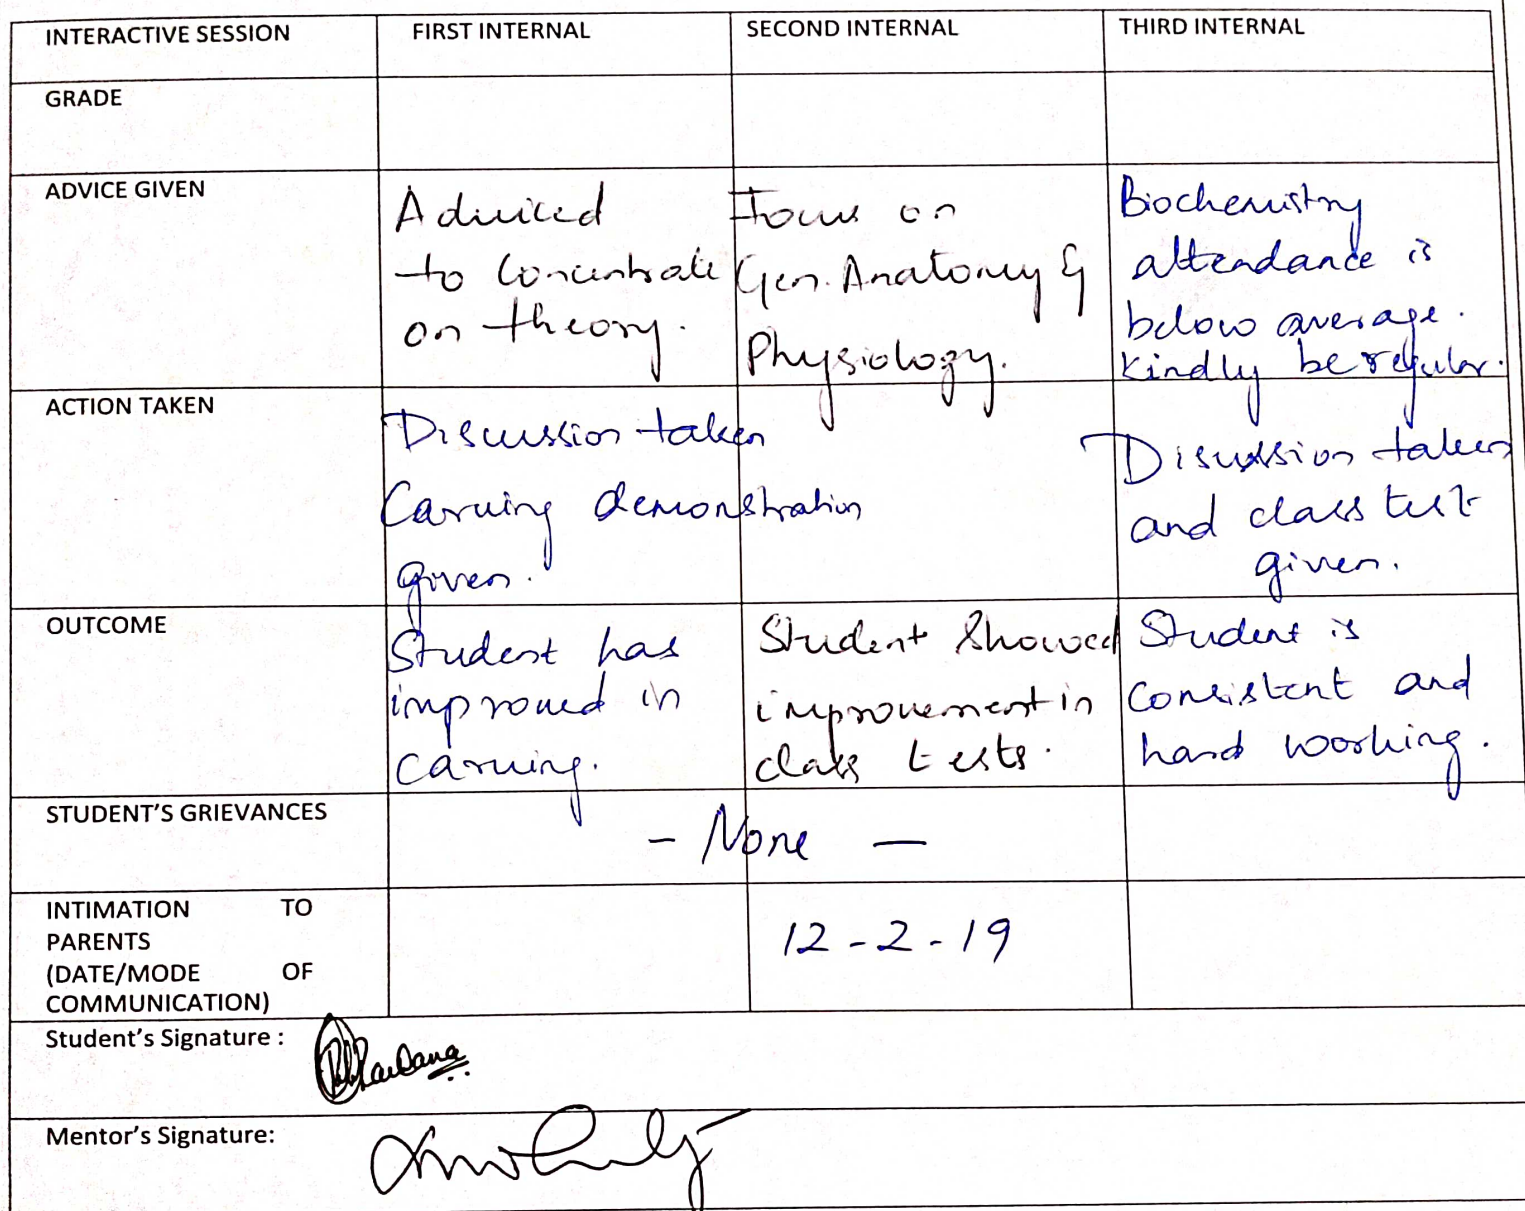 INTERACTIVE SESSION FIRST INTERNAL SECOND INTERNAL THIRD INTERNAL
GRADE
ADVICE GIVEN
Adviced
to Concentrate
on theory.
Focus on
Gen. Anatomy &
Physiology.
Biochemistry
attendance is
below average.
Kindly be regular.
ACTION TAKEN
Discussion taken
Carving demonstration
given.
Discussion taken
and class test
given.
OUTCOME
Student has
improved in
Carving.
Student Showed
improvement in
class tests.
Student is
Consistent and
hard working.
STUDENT'S GRIEVANCES
- None -
INTIMATION TO
PARENTS
(DATE/MODE OF
COMMUNICATION)
12-2-19
Student's Signature :
Mentor's Signature: